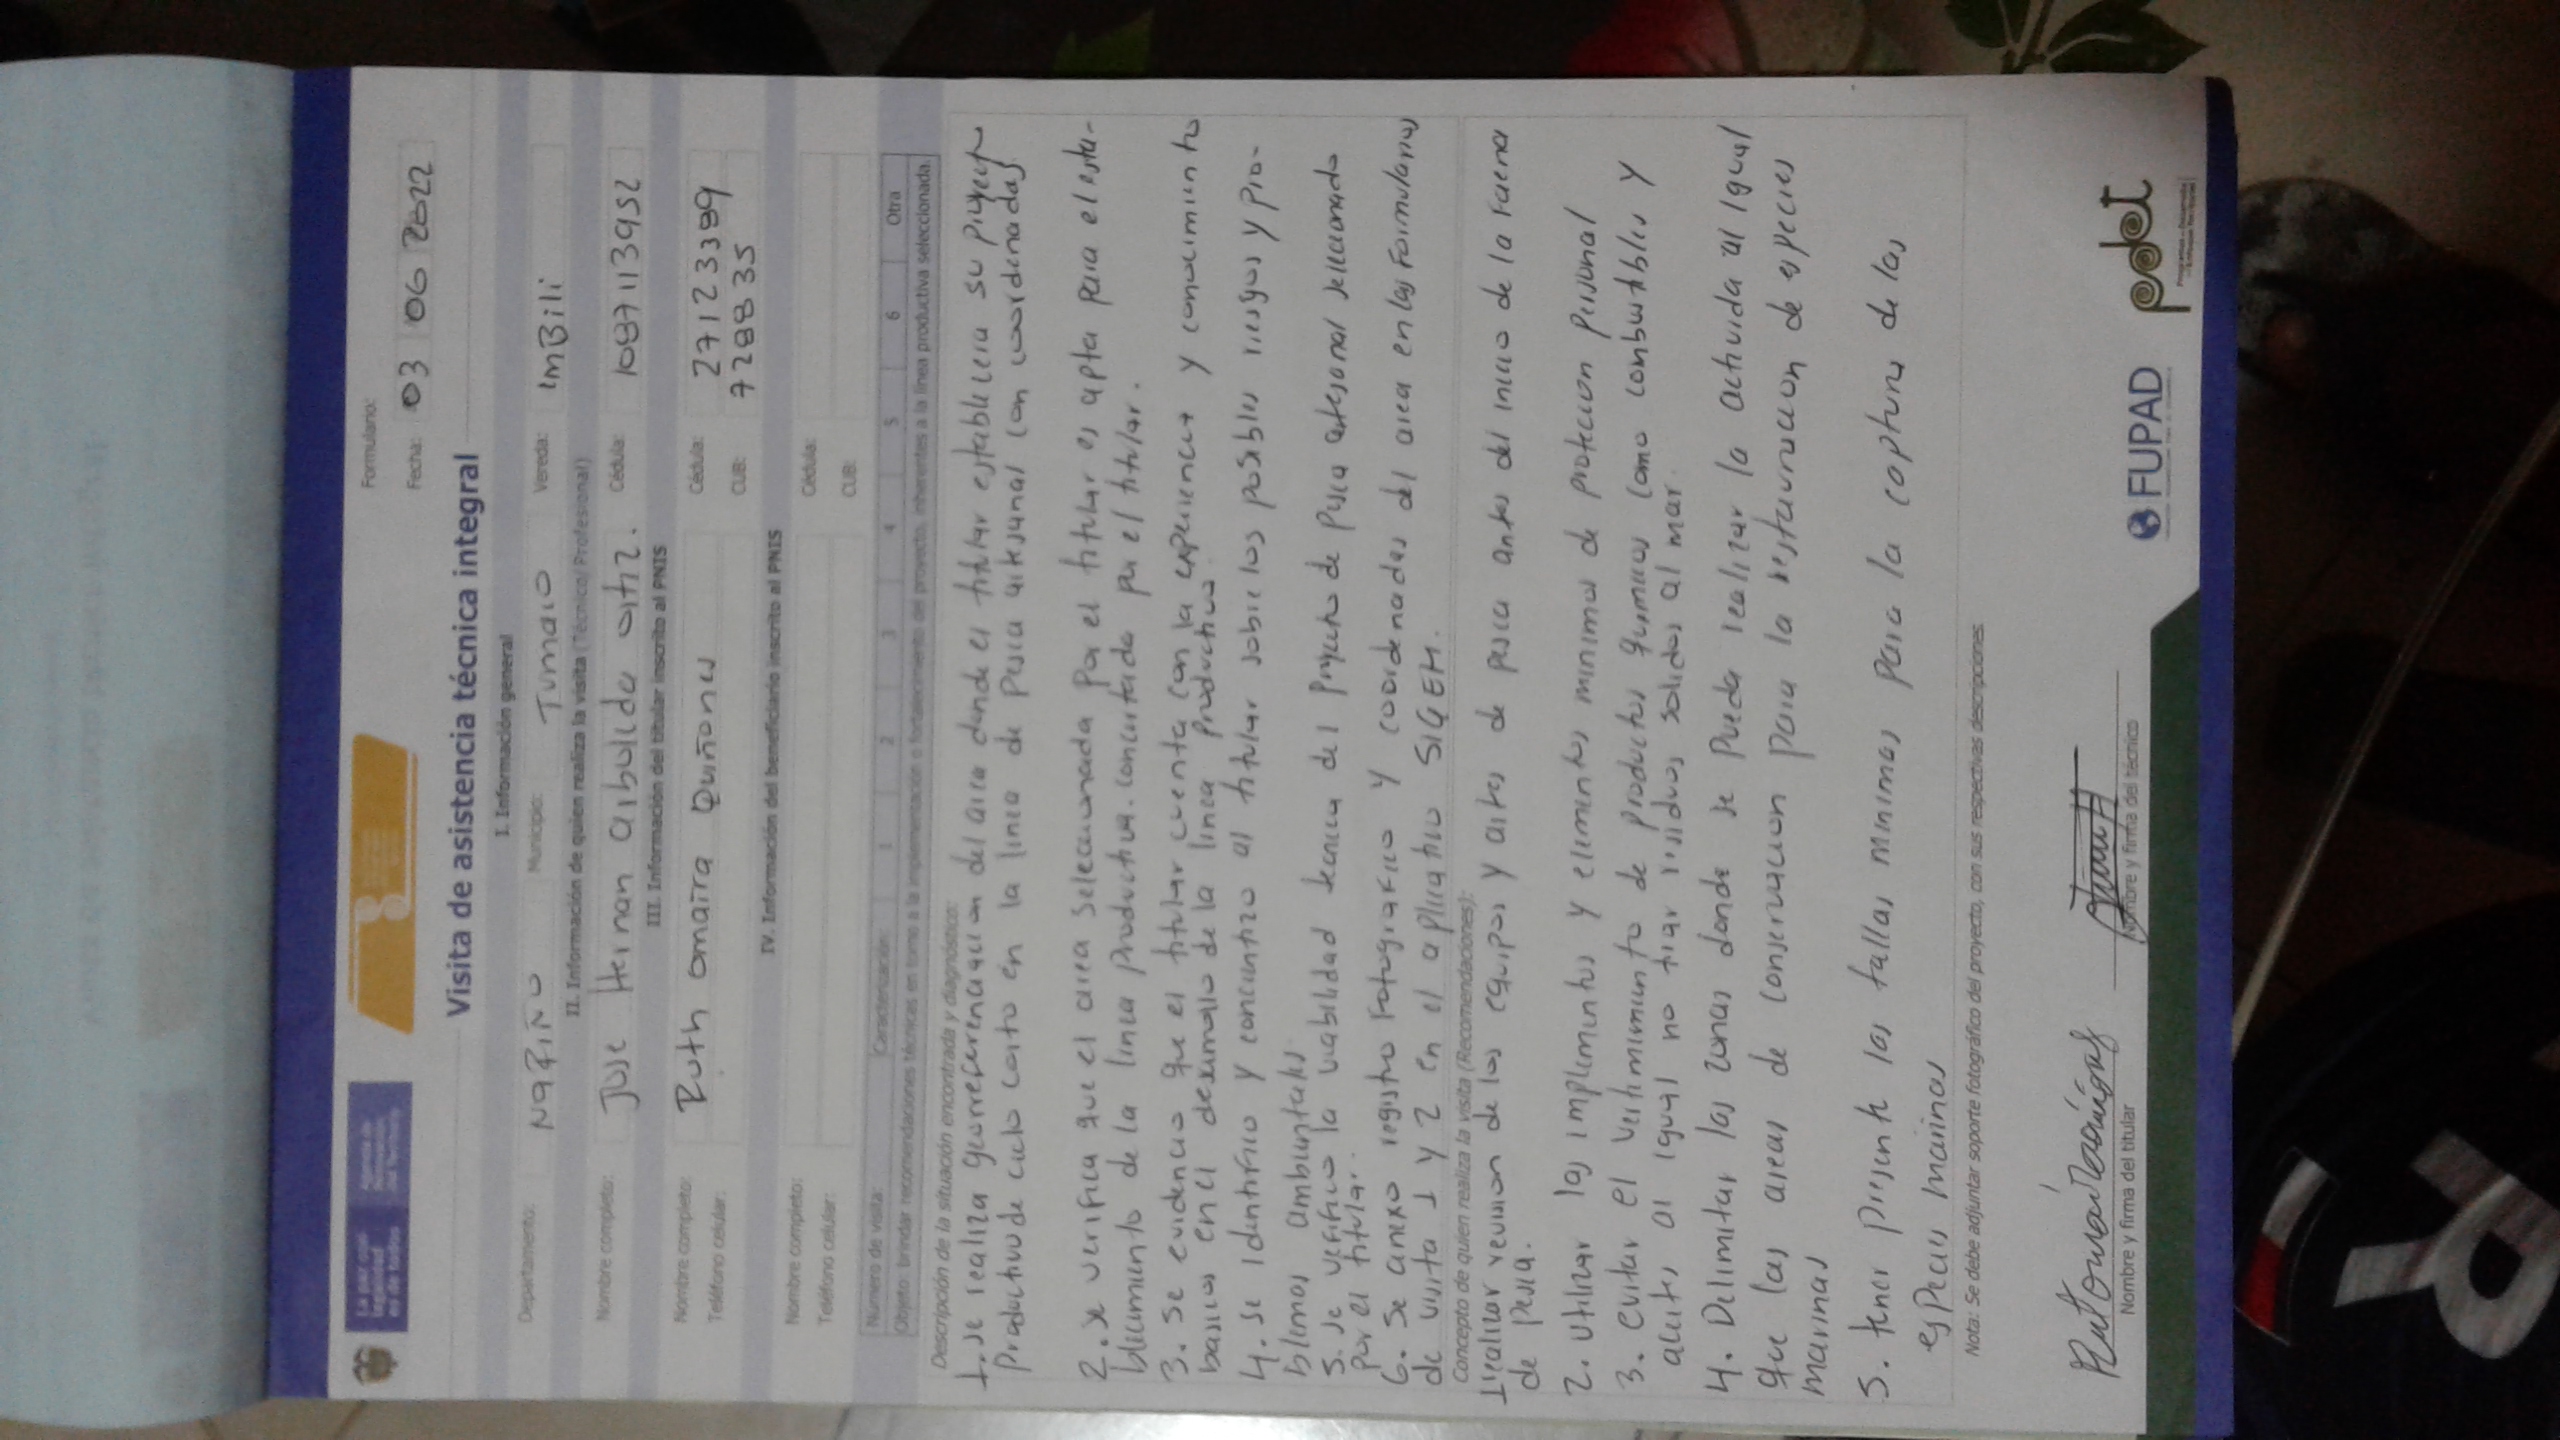 La paz con legalidad es de todos
Agencia de Renovación del Territorio
Formulario:
Fecha: 03 06 2022
Visita de asistencia técnica integral
I. Información general
Departamento: NARIÑO Municipio: TUMACO Vereda: ImBili
II. Información de quien realiza la visita (Técnico/ Profesional)
Nombre completo: Jose Hernan arboleda ortiz. Cédula: 1087113952
III. Información del titular inscrito al PNIS
Nombre completo: Ruth omaira Quiñones Cédula: 27123399
Teléfono celular: CUB: 728835
IV. Información del beneficiario inscrito al PNIS
Nombre completo: Cédula:
Teléfono celular: CUB:
Número de visita: Caracterización: 1 2 3 4 5 6 Otra
Objeto: brindar recomendaciones técnicas en torno a la implementación o fortalecimiento del proyecto, inherentes a la línea productiva seleccionada.
Descripción de la situación encontrada y diagnóstico:
1. se realiza georreferenciacion del area donde el titular establecera su proyecto
productivo de ciclo corto en la linea de pesca artesanal (con coordenadas)
2. se verifica que el area seleccionada por el titular es apta para el esta-
blecimiento de la linea productiva. concertada por el titular.
3. se evidencio que el titular cuenta con la experiencia y conocimiento
basicos en el desarrollo de la linea productiva.
4. se identifico y concientizo al titular sobre los posibles riesgos y pro-
blemas ambientales
5. se verifico la viabilidad tecnica del proyecto de pesca artesonal seleccionado
por el titular.
6. se anexo registro fotografico y coordenadas del area en los formularios
de visita 1 y 2 en el aplicativo SIGEH.
Concepto de quien realiza la visita (Recomendaciones):
1. realizar revision de los equipos y artes de pesca antes del inicio de la faena
de pesca.
2. utilizar los implementos y elementos minimos de proteccion personal
3. evitar el vertimiento de productos quimicos como conbustibles y
aceites al igual no tirar residuos solidos al mar.
4. Delimitar las zonas donde se pueda realizar la actividad al igual
que las areas de conservacion para la restauracion de especies
marinas
5. tener presente las tallas minimas para la captura de las
especies marinas
Nota: Se debe adjuntar soporte fotográfico del proyecto, con sus respectivas descripciones.
Nombre y firma del titular
Nombre y firma del técnico
FUPAD
pdet